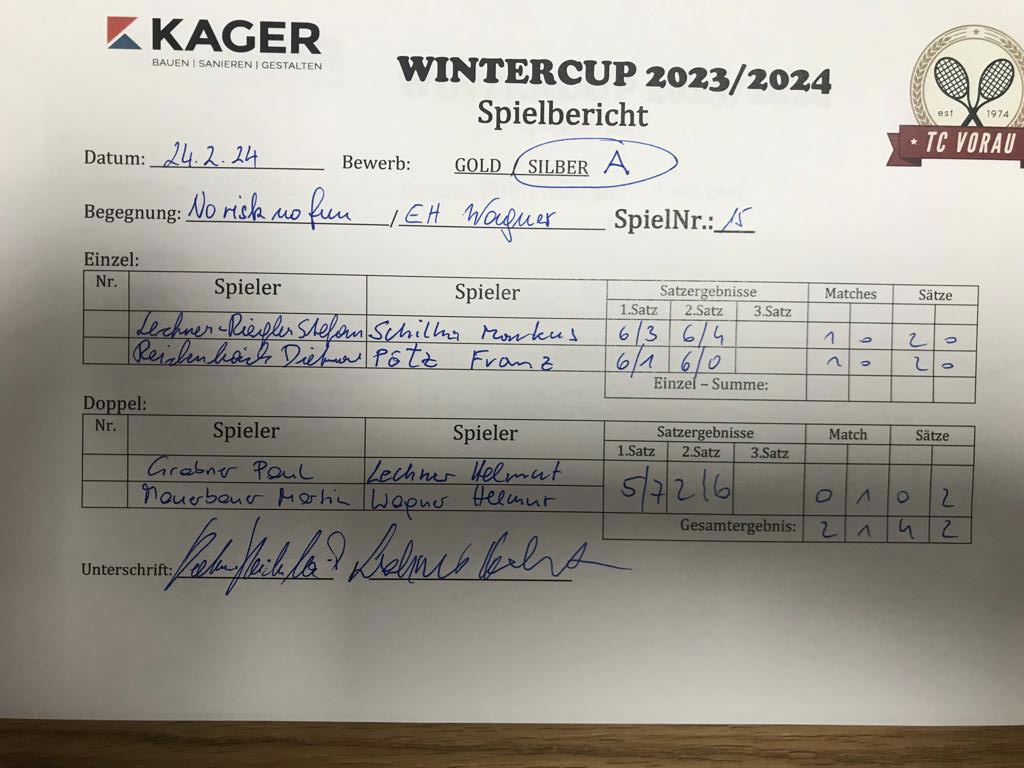 KAGER
BAUEN | SANIEREN | GESTALTEN
WINTERCUP 2023/2024
Spielbericht
est 1974
TC VORAU
Datum: 24.2.24 Bewerb: GOLD / SILBER A
Begegnung: No risk no fun / EH Wagner SpielNr.: 15
Einzel:
Nr. Spieler Spieler Satzergebnisse Matches Sätze
1.Satz 2.Satz 3.Satz
Lechner-Riegler Stefan Markus 6/3 6/4 1 0 2 0
Pötz Franz 6/1 6/0 1 0 2 0
Einzel – Summe:
Doppel:
Nr. Spieler Spieler Satzergebnisse Match Sätze
1.Satz 2.Satz 3.Satz
Grabner Paul Lechner Helmut
Mauerbauer Martin Wagner Helmut 5/7 2/6 0 1 0 2
Gesamtergebnis: 2 1 4 2
Unterschrift: